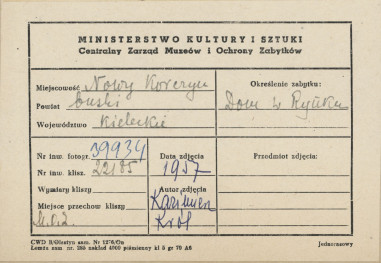 MINISTERSTWO KULTURY I SZTUKI
Centralny Zarząd Muzeów i Ochrony Zabytków
Miejscowość Nowy Korczyn
Powiat buski
Województwo Kieleckie
Określenie zabytku:
Dom w Rynku
Nr inw. fotogr. 39934
Nr inw. klisz. 22185
Wymiary kliszy
Miejsce przechow kliszy
Data zdjęcia
1957
Autor zdjęcia
Kazimierz
Król
Przedmiot zdjęcia:
CWD R/Olsztyn zam. Nr 1276/On
Łomża zam. nr. 285 nakład 4000 piśmienny kl 5 gr 70 A6
Jednorazowy